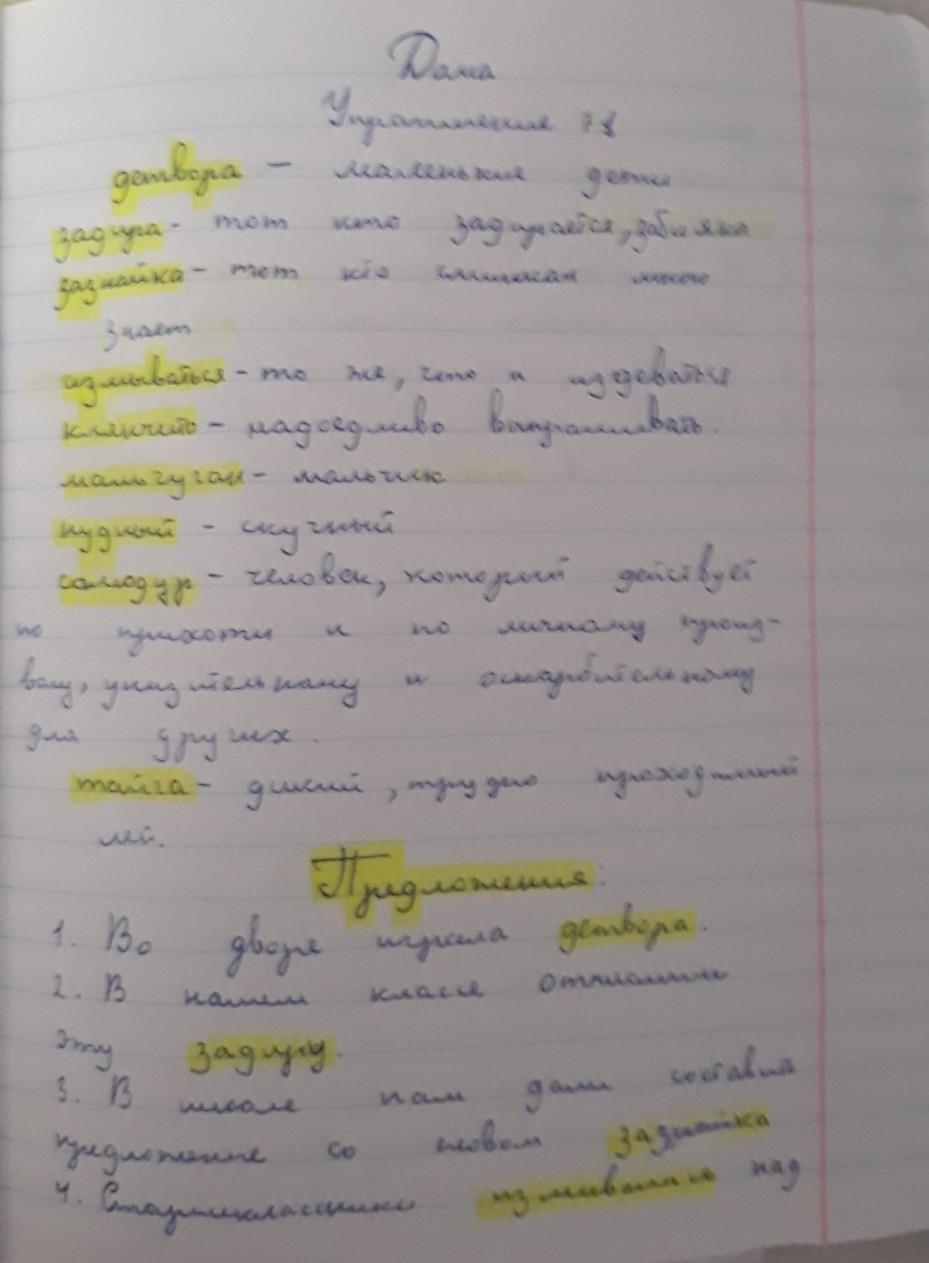 Дома
Упражнение 78
детвора – маленькие дети
задира - тот кто задирается, забияка
зазнайка - тот кто слишком много
знает
измываться - то же, что и издеваться
клянчить - надоедливо выпрашивать.
мальчуган - мальчик
нудный - скучный
самодур - человек, который действует
по прихоти и по личному произ-
волу, унизительному и оскорбительному
для других.
тайга - дикий, трудно проходимый
лес.
Предложения:
1. Во дворе играла детвора.
2. В нашем классе отчислили
эту задиру.
3. В школе нам дали составить
предложение со словом зазнайка
4. Старшеклассники измывались над